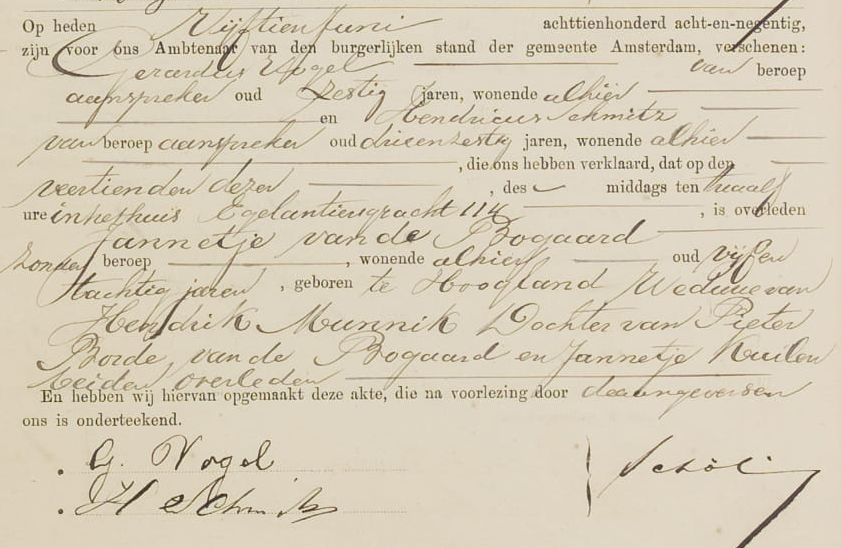 Op heden Vijftien Juni achttienhonderd acht-en-negentig,
zijn voor ons Ambtenaar van den burgerlijken stand der gemeente Amsterdam, verschenen:
Gerardus Vogel van beroep
aanspreker oud Zestig jaren, wonende alhier
en Hendricus Schmitz
van beroep aanspreker oud drieenzestig jaren, wonende alhier
, die ons hebben verklaard, dat op den
veertienden dezer , des middags ten twaalf
ure in het huis Egelantiersgracht 114 , is overleden
Jannetje van de Bogaard
zonder beroep , wonende alhier oud vijf en
tachtig jaren , geboren te Hoogland Weduwe van
Hendrik Munnik Dochter van Pieter
Borde van de Bogaard en Jannetje Kuilen
beiden overleden
En hebben wij hiervan opgemaakt deze akte, die na voorlezing door de aangevers en
ons is onderteekend.
G. Vogel
H Schmitz